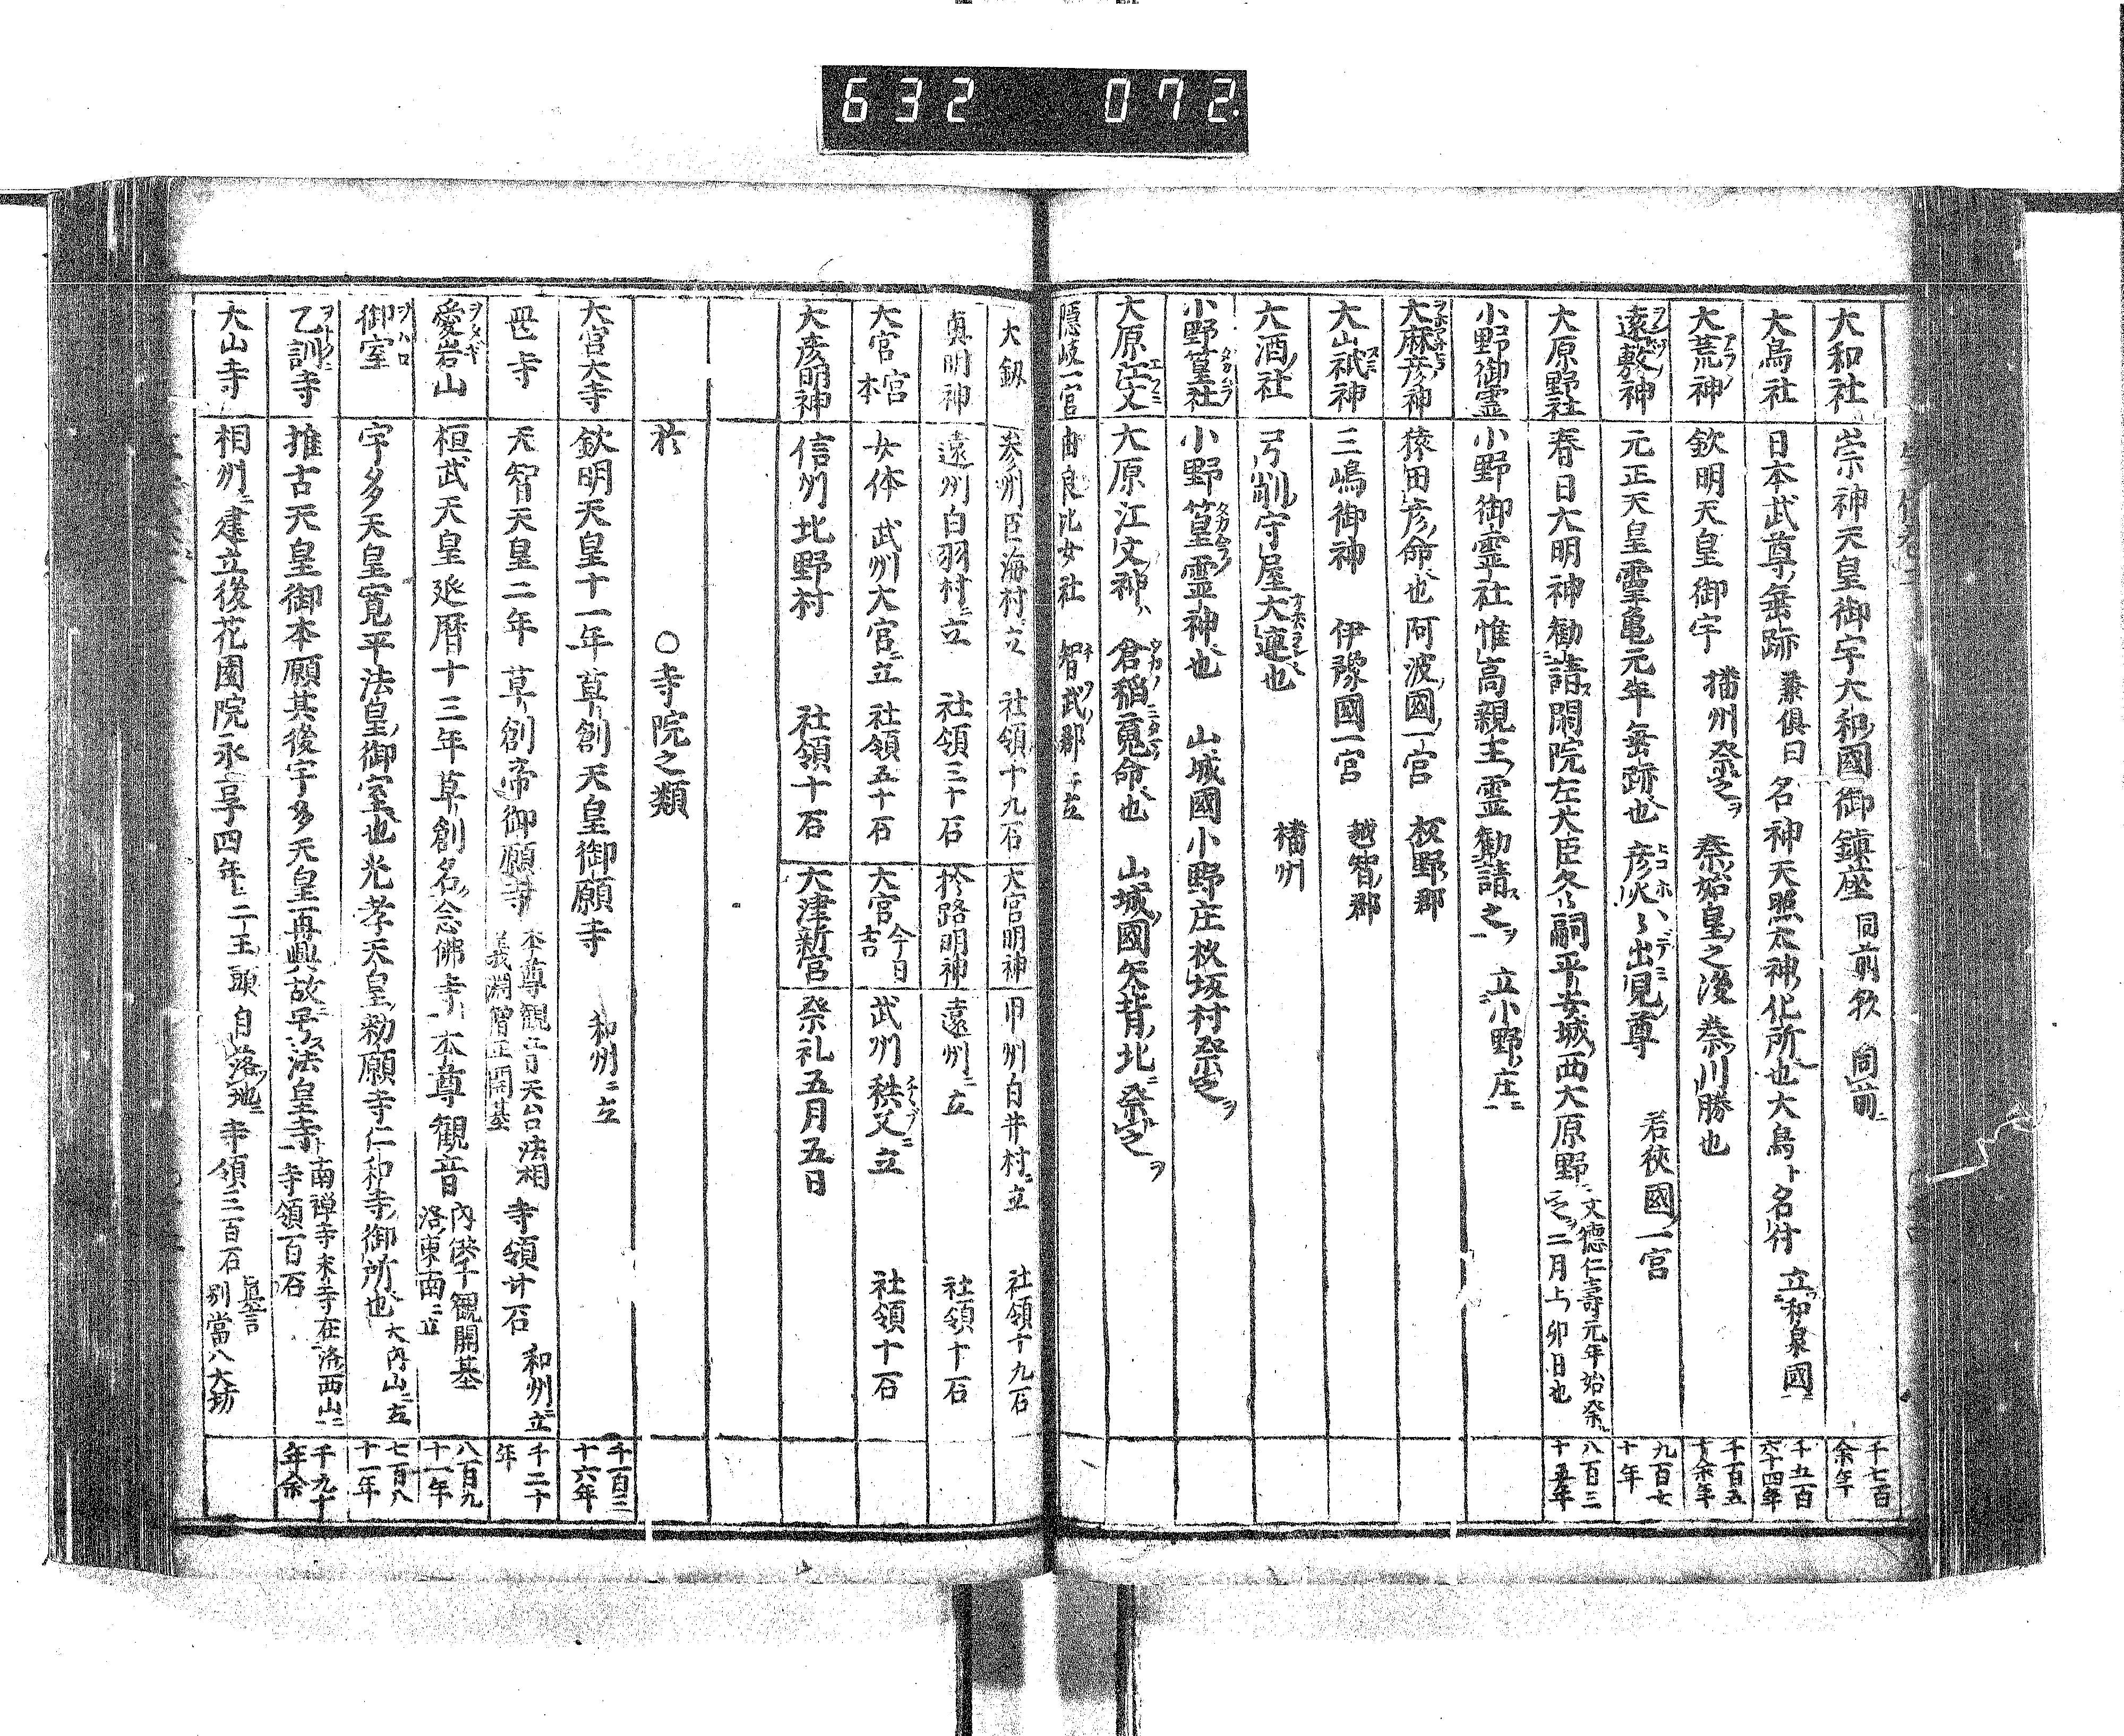 632 072
大和社 崇神天皇御宇大和國御鎮座 同前欤 同前ニ 千七百余年
大鳥社 日本武尊ノ垂跡 兼倶曰 名神天照太神ノ化所也大鳥ト名付 立和泉國ニ 千五百六十四年
大荒神 欽明天皇御宇 播州祭之ヲ 秦始皇之後 秦川勝也 千百五十余年
遠敷神 元正天皇霊亀元年垂跡也 彦火々出見尊 若狹國一宮 九百七十年
大原野社 春日大明神勧請閑院左大臣冬嗣平安城西大原野ニ 文徳仁壽元年始祭之ヲ二月上ノ卯日也 八百三十五年
小野御霊 小野御霊社惟高親王ノ霊勧請之ヲ 立小野庄ニ
大麻彦神 猿田彦命也 阿波國一宮 板野郡
大山祇神 三嶋御神 伊豫國一宮 越智郡
大酒社 弓削守屋大連也 播州
小野篁社 小野篁霊神也 山城國小野庄杦坂村祭之ヲ
大原江文 大原江文神ハ 倉稲魂命也 山城國矢背北ニ祭之ヲ
隠岐一宮 由良比女社 智武郡ニ立
大釼 参州臣海村ニ立 社領十九石 大宮明神 甲州白井村ニ立 社領十九石
真明神 遠州白羽村ニ立 社領三十石 於路明神 遠州ニ立 社領十石
大宮 本宮 女体 武州大宮ニ立 社領五十石 大宮 今日吉 武州秩父ニ立 社領十石
大彦明神 信州北野村 社領十石 大津新宮 祭礼五月五日
於 ○寺院之類
大官大寺 欽明天皇十一年草創天皇御願寺 和州ニ立 千一百三十六年
罡寺 天智天皇二年 草創帝御願寺 本尊觀音天台法相 義淵僧正開基 寺領廿石 和州ニ立 千二十年
愛岩山 桓武天皇延暦十三年草創名念佛寺ト 本尊観音 内供千觀開基 洛東南ニ立 八百九十一年
御室 宇多天皇寛平法皇ノ御室也光孝天皇ノ勅願寺仁和寺ノ御所也 大内山ニ立 七百八十一年
乙訓寺 推古天皇御本願其後宇多天皇再興故号法皇寺ト 南禅寺末寺在洛西山ニ 寺領一百石 千九十年余
大山寺 相州ニ建立後花園院永享四年ニ二王ノ頭自落地ニ 寺領三百石 真言 別當八大坊